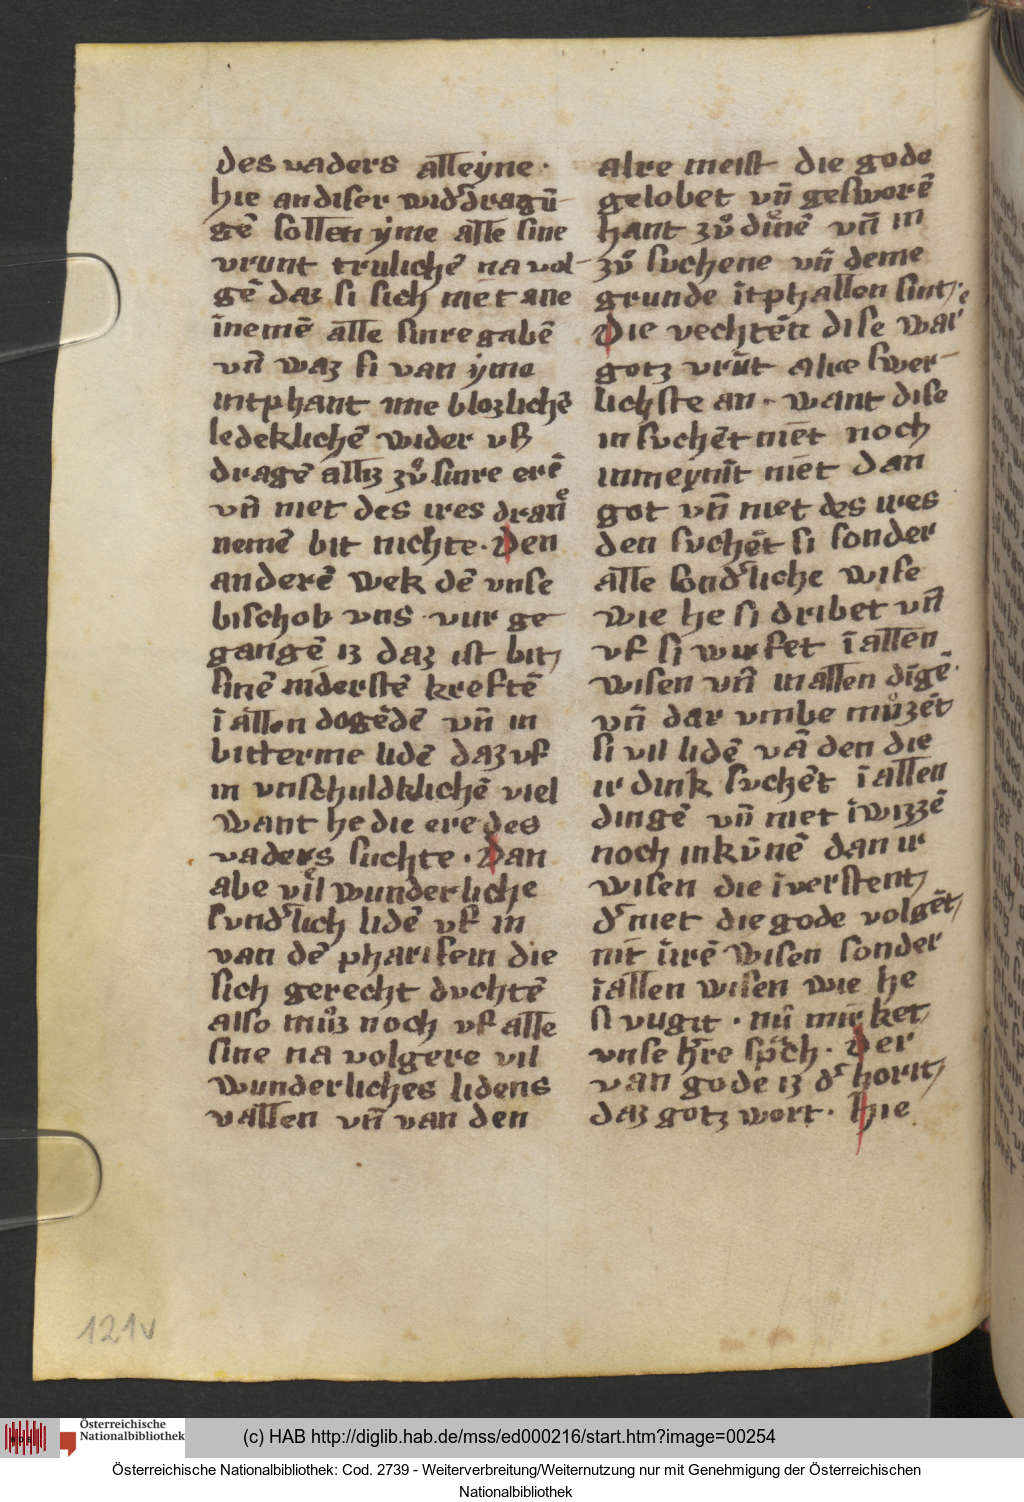 des vaders alleyne·
hie an diser widˀdragū-
gē sollen ẏme alle sine
vrunt trulichē na vol-
gē daz si sich niet ane
īnemē alle sinre gabē
vn̄ waz si van ẏme
intphant nne blozlichē
ledeklichē wider vf
dragē alliz zuͦ sinre erē
vn̄ niet des ires dran
nemē bit nichte· Den
anderē wek dē vnse
bischob vns vur ge
gangē iz daz ist bit
sinē niderstē kreftē
ī allen dogēdē vn̄ in
bitterme lidē daz vf
in vnschuldklichē viel
want he die ere des
vaders suchte· Dan
abe vil wunderliche
sundˀlich lidē vf in
van dē pharisein die
sich gerecht duchtē
also muͦz noch vf alle
sine na volgere vil
wunderliches lidens
vallen vn̄ van den
alre meist die gode
gelobet vn̄ gesworē
hant zuͦ dinē vn̄ in
zuͦ suchene vn̄ deme
grunde ītphallen sint·
Die vechtēt dise war
gotz vrūt alre swer-
lichste an· want dise
in suchēt niet noch
inmeynīt niet dan
got vn̄ niet des ires
den suchēt si sonder
alle sondˀliche wise
wie he si dribet vn̄
vf si wirfet ī allen
wisen vn̄ in allen dīgē·
vn̄ dar vmbe muͦzēt
si vil lidē vā den die
ir dink suchēt ī allen
dingē vn̄ niet īwizzē
noch inkūnē dan ir
wisen die īverstent
dˀ niet die gode volgēt
nit īirē wisen sonder
ī allen wisen wie he
si vugit· nū mirket
vnse hˀre spͣch· Der
van gode iz dˀ horit
daz gotz wort· Hie
121v
Österreichische
Nationalbibliothek
(c) HAB http://diglib.hab.de/mss/ed000216/start.htm?image=00254
Österreichische Nationalbibliothek: Cod. 2739 - Weiterverbreitung/Weiternutzung nur mit Genehmigung der Österreichischen
Nationalbibliothek